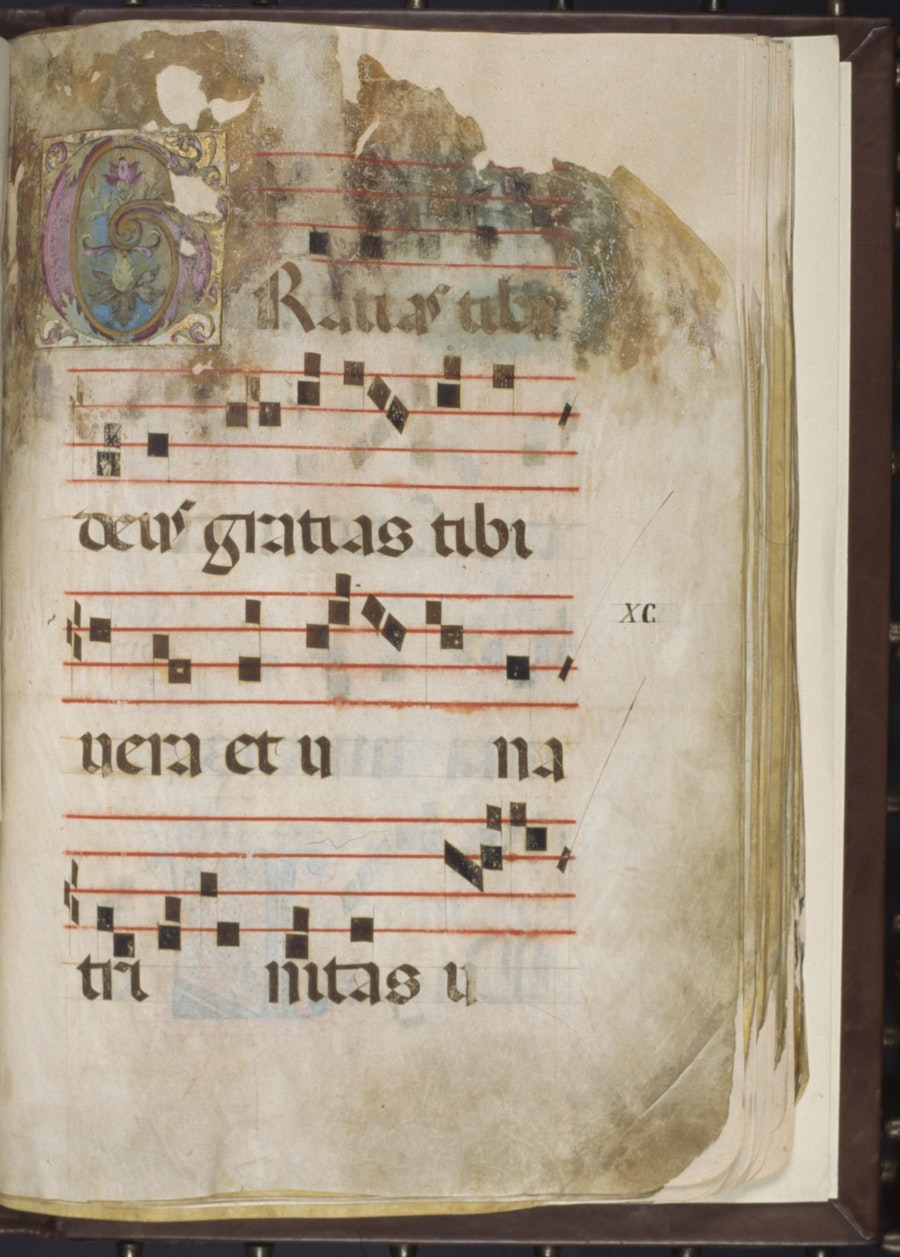 GRatias tibi
deus gratias tibi
XC
uera et u na
tri nitas u